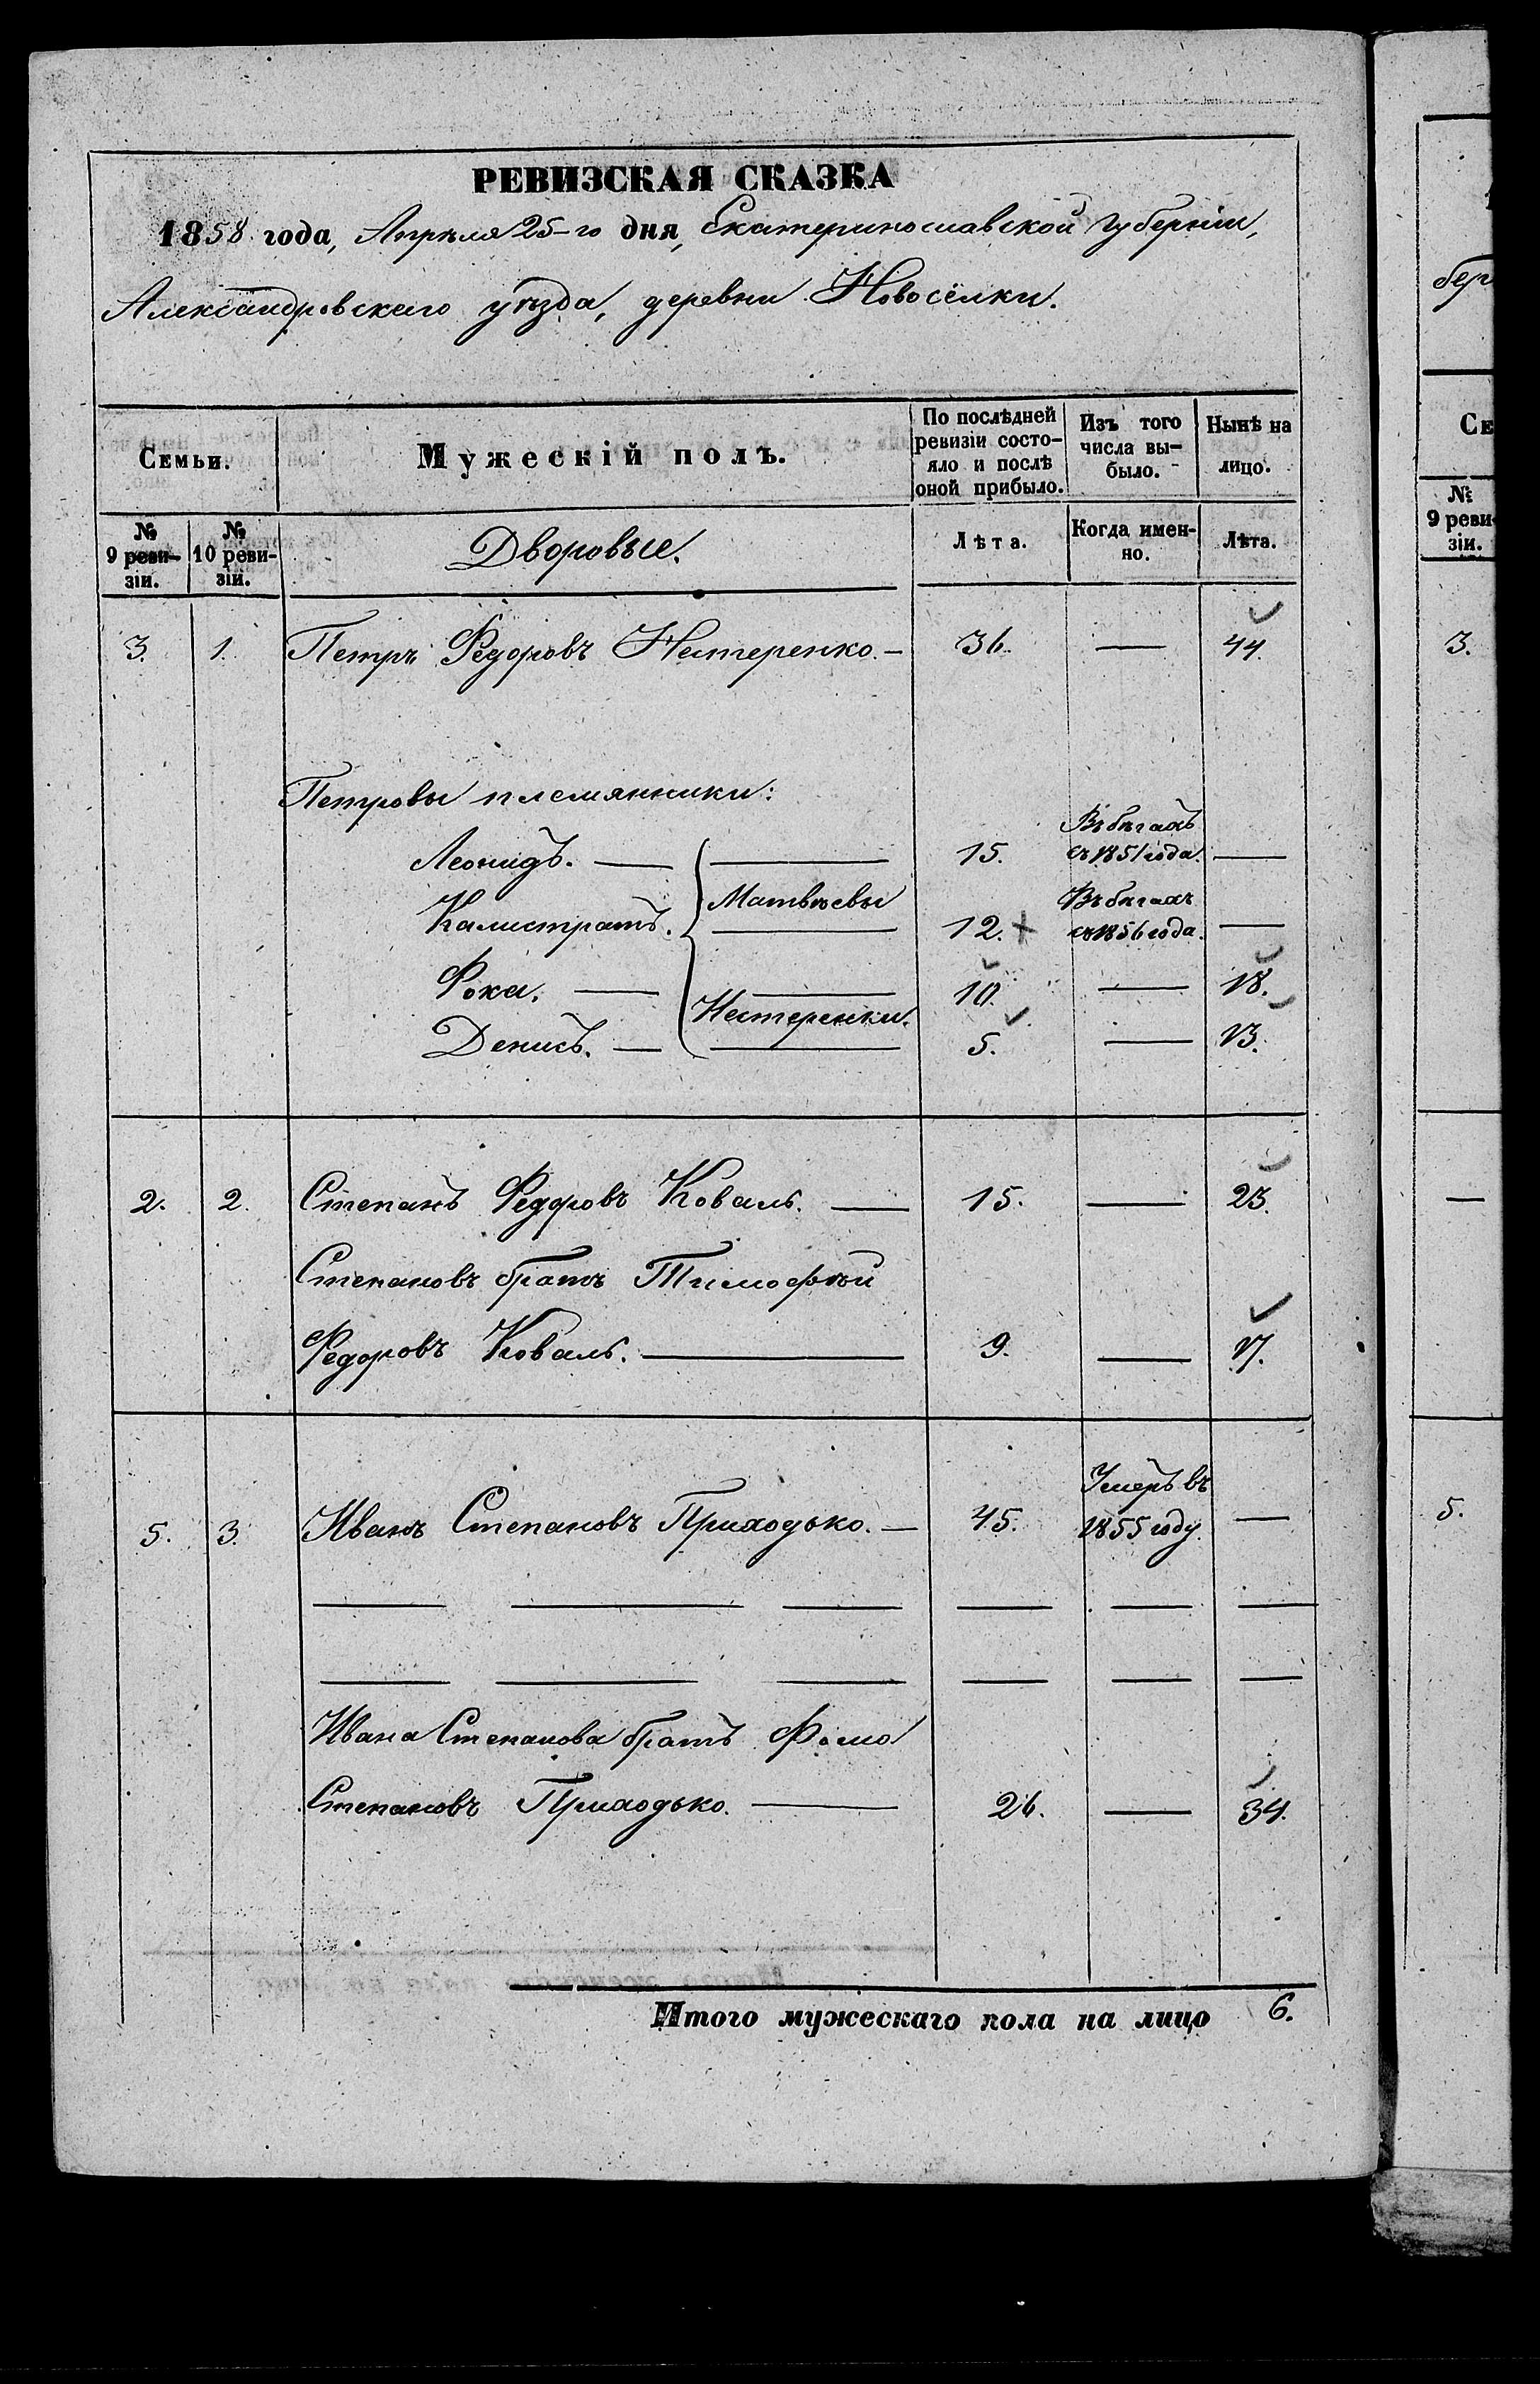 РЕВИЗСКАЯ СКАЗКА
1858 года, Апрѣля 25-го дня, Екатеринославской губерніи,
Александровскаго уѣзда, деревни Новосёлки.
Семьи. Мужескій полъ. По послѣдней ревизіи состо- яло и послѣ оной прибыло. Изъ того числа вы- было. Нынѣ на лицо.
№ 9 реви- зіи. № 10 реви- зіи. Дворовые. Лѣта. Когда имен- но. Лѣта.
3. 1. Петръ Федоровъ Нестеренко. — 36. — 44.
Петровы племянники:
Леонидъ. — 15. Въ бѣгахъ съ 1851 года. —
Калистратъ. Матвѣевы 12. + Въ бѣгахъ съ 1856 года. —
Фока. — 10. — 18.
Нестеренки.
Денисъ. — 5. — 13.
2. 2. Степанъ Федоровъ Коваль. — 15. — 23.
Степановъ братъ Тимофѣй
Федоровъ Коваль. — 9. — 17.
5. 3. Иванъ Степановъ Приходько. — 45. Умеръ въ 1855 году. —
Ивана Степанова братъ Фома
Степановъ Приходько. — 26. — 34.
Итого мужескаго пола на лицо 6.
бер
Се
№ 9 реви- зіи.
3.
—
5.